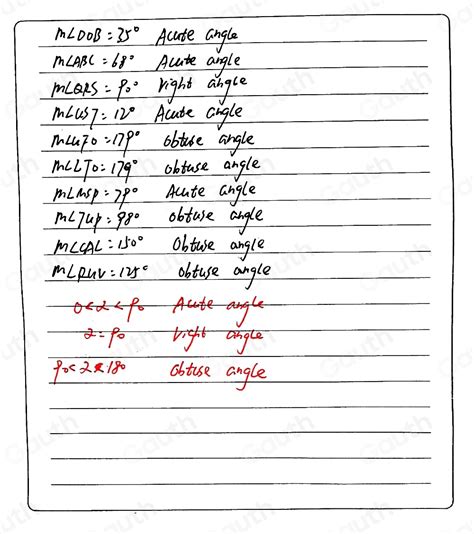 m∠DOB = 35° Acute angle
m∠ABC = 68° Acute angle
m∠QRS = 90 right angle
m∠UST = 12° Acute angle
m∠UTO = 179° obtuse angle
m∠LTO = 179° obtuse angle
m∠MSP = 79° Acute angle
m∠TUP = 98° obtuse angle
m∠CAL = 150° Obtuse angle
m∠RUV = 125° obtuse angle
0<2<90 Acute angle
2=90 right angle
90<2<180 obtuse angle
Gauth